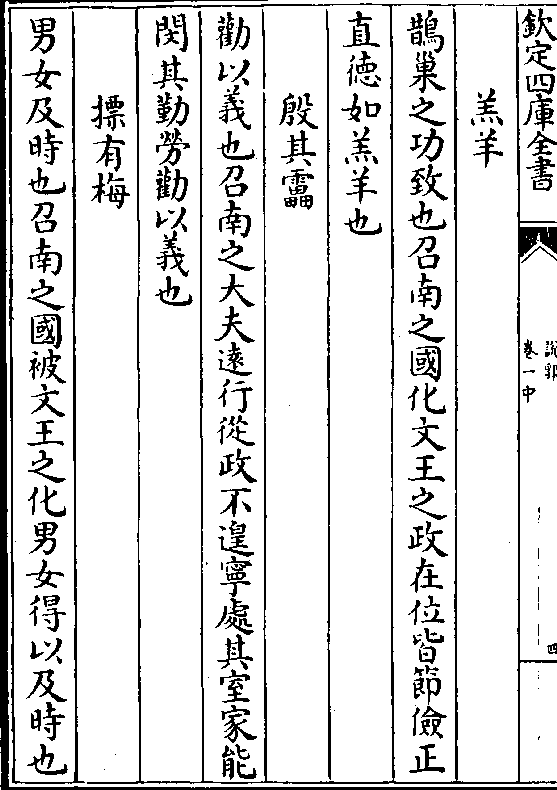 欽定四庫全書
說郛
卷一中
四
羔羊
鵲巢之功致也召南之國化文王之政在位皆節儉正
直徳如羔羊也
殷其靁
勸以義也召南之大夫逺行從政不遑寧處其室家能
閔其勤勞勸以義也
摽有梅
男女及時也召南之國被文王之化男女得以及時也